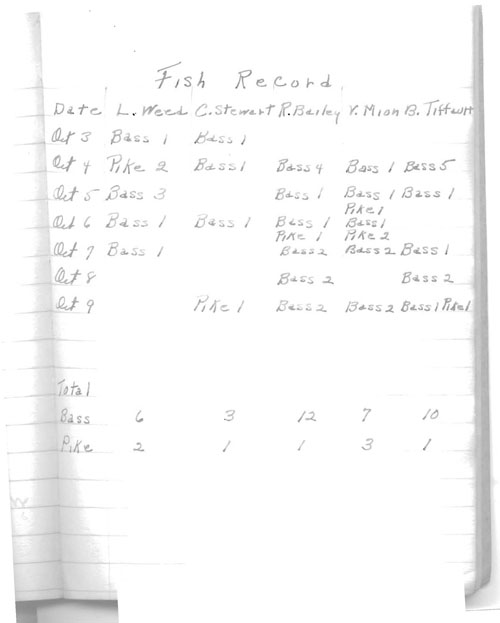 Fish Record
Date L. Weed C. Stewart R. Bailey V. Mion B. Tiffault
Oct 3 Bass 1 Bass 1
Oct 4 Pike 2 Bass 1 Bass 4 Bass 1 Bass 5
Oct 5 Bass 3 Bass 1 Bass 1 Bass 1
Pike 1
Oct 6 Bass 1 Bass 1 Bass 1 Bass 1
Pike 1 Pike 2
Oct 7 Bass 1 Bass 2 Bass 2 Bass 1
Oct 8 Bass 2 Bass 2
Oct 9 Pike 1 Bass 2 Bass 2 Bass 1 Pike 1
Total
Bass 6 3 12 7 10
Pike 2 1 1 3 1